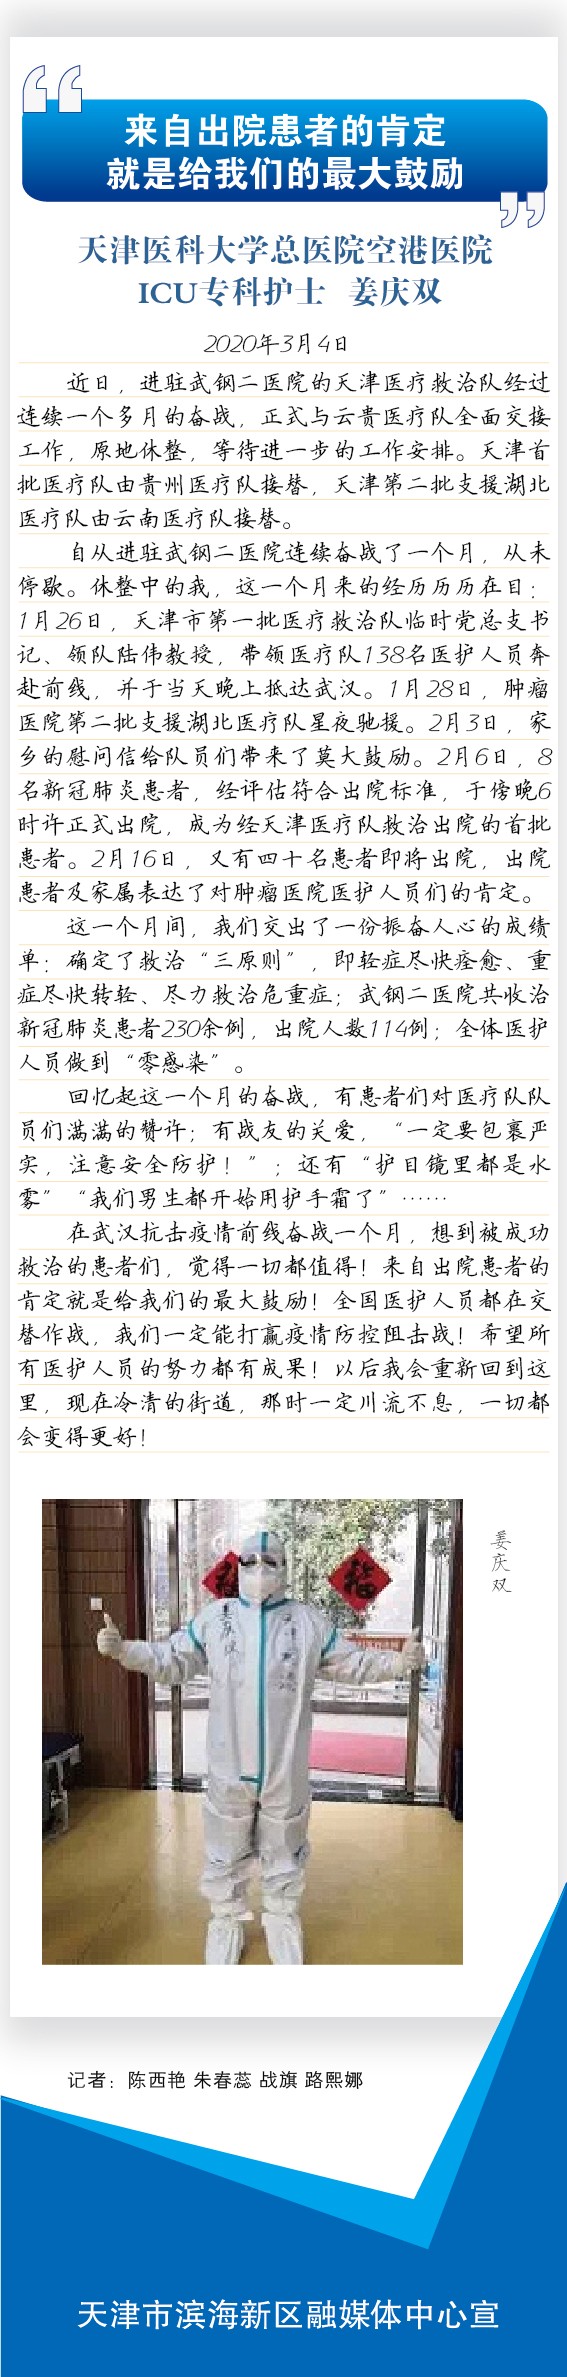 来自出院患者的肯定
就是给我们的最大鼓励
天津医科大学总医院空港医院
ICU专科护士 姜庆双
2020年3月4日
近日，进驻武钢二医院的天津医疗救治队经过
连续一个多月的奋战，正式与云贵医疗队全面交接
工作，原地休整，等待进一步的工作安排。天津首
批医疗队由贵州医疗队接替，天津第二批支援湖北
医疗队由云南医疗队接替。
自从进驻武钢二医院连续奋战了一个月，从未
停歇。休整中的我，这一个月来的经历历历在目：
1月26日，天津市第一批医疗救治队临时党总支书
记、领队陆伟教授，带领医疗队138名医护人员奔
赴前线，并于当天晚上抵达武汉。1月28日，肿瘤
医院第二批支援湖北医疗队星夜驰援。2月3日，家
乡的慰问信给队员们带来了莫大鼓励。2月6日，8
名新冠肺炎患者，经评估符合出院标准，于傍晚6
时许正式出院，成为经天津医疗队救治出院的首批
患者。2月16日，又有四十名患者即将出院，出院
患者及家属表达了对肿瘤医院医护人员们的肯定。
这一个月间，我们交出了一份振奋人心的成绩
单：确定了救治“三原则”，即轻症尽快痊愈、重
症尽快转轻、尽力救治危重症；武钢二医院共收治
新冠肺炎患者230余例，出院人数114例；全体医护
人员做到“零感染”。
回忆起这一个月的奋战，有患者们对医疗队队
员们满满的赞许；有战友的关爱，“一定要包裹严
实，注意安全防护！”；还有“护目镜里都是水
雾”“我们男生都开始用护手霜了”……
在武汉抗击疫情前线奋战一个月，想到被成功
救治的患者们，觉得一切都值得！来自出院患者的
肯定就是给我们的最大鼓励！全国医护人员都在交
替作战，我们一定能打赢疫情防控阻击战！希望所
有医护人员的努力都有成果！以后我会重新回到这
里，现在冷清的街道，那时一定川流不息，一切都
会变得更好！
姜庆双
福
福
姜庆双
记者：陈西艳 朱春蕊 战旗 路熙娜
天津市滨海新区融媒体中心宣